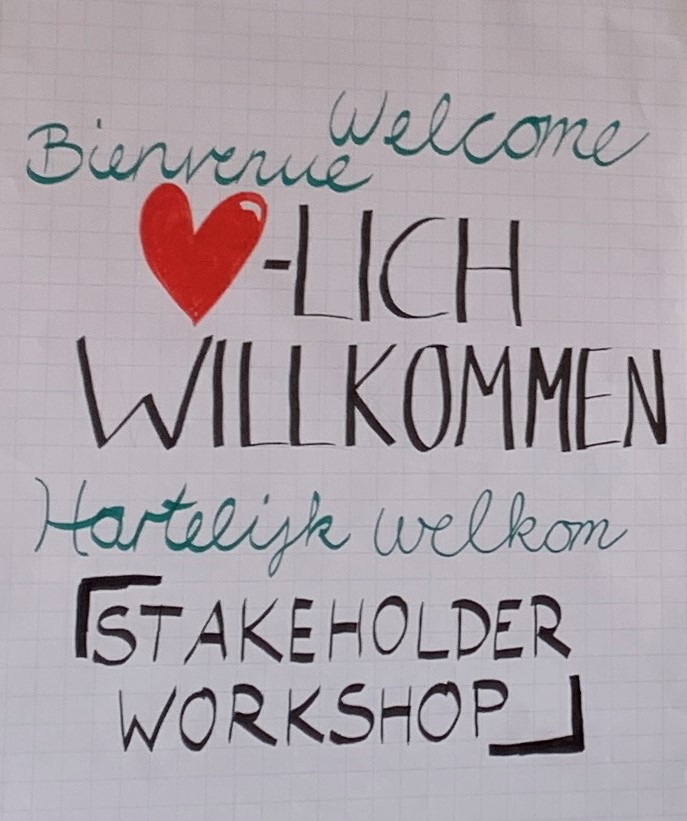 Welcome
Bienvenue
❤-LICH
WILLKOMMEN
Hartelijk welkom
STAKEHOLDER
WORKSHOP